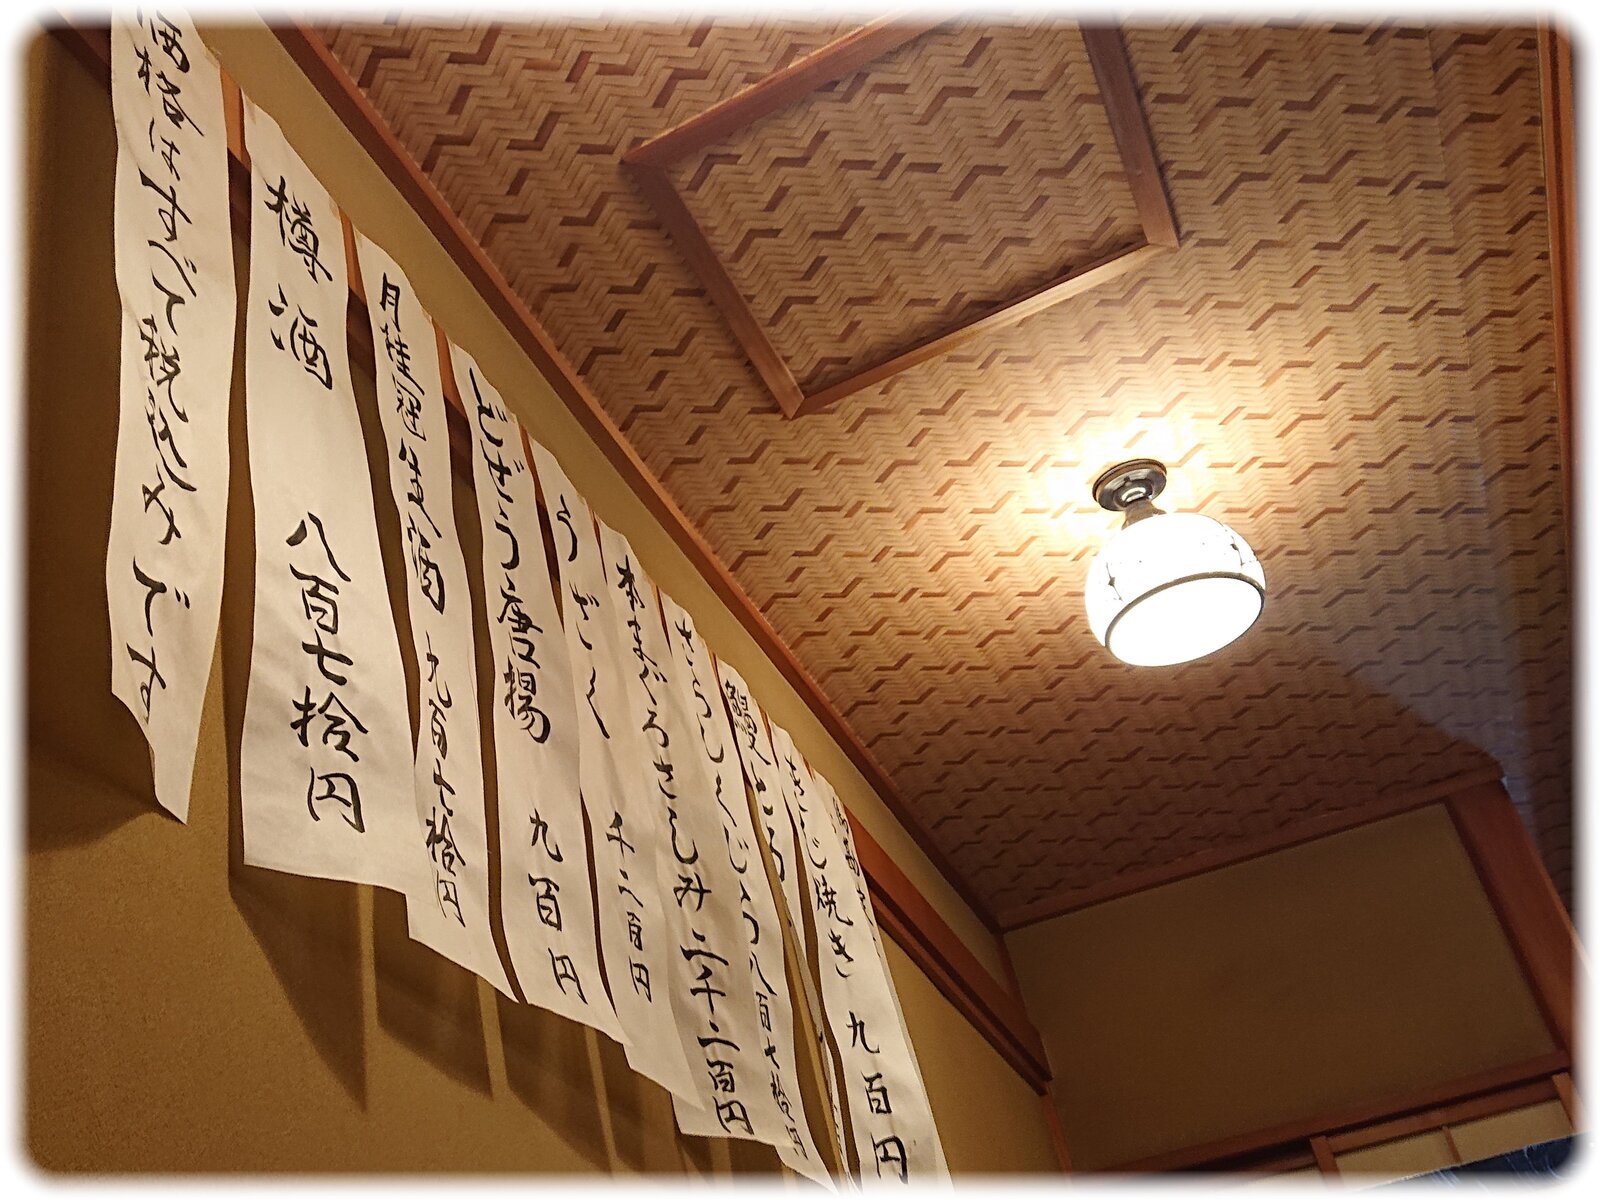 価格はすべて税込みです
樽酒 八百七拾円
月桂冠生酒 九百七拾円
どぜう唐揚 九百円
うざく 千二百円
本まぐろさしみ 二千二百円
さらしくじら 八百七拾円
鰻 ところ
きじ焼き 九百円